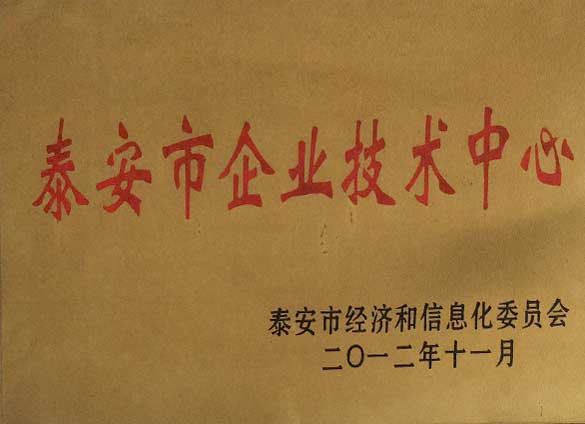 泰安市企业技术中心
泰安市经济和信息化委员会
二〇一二年十一月